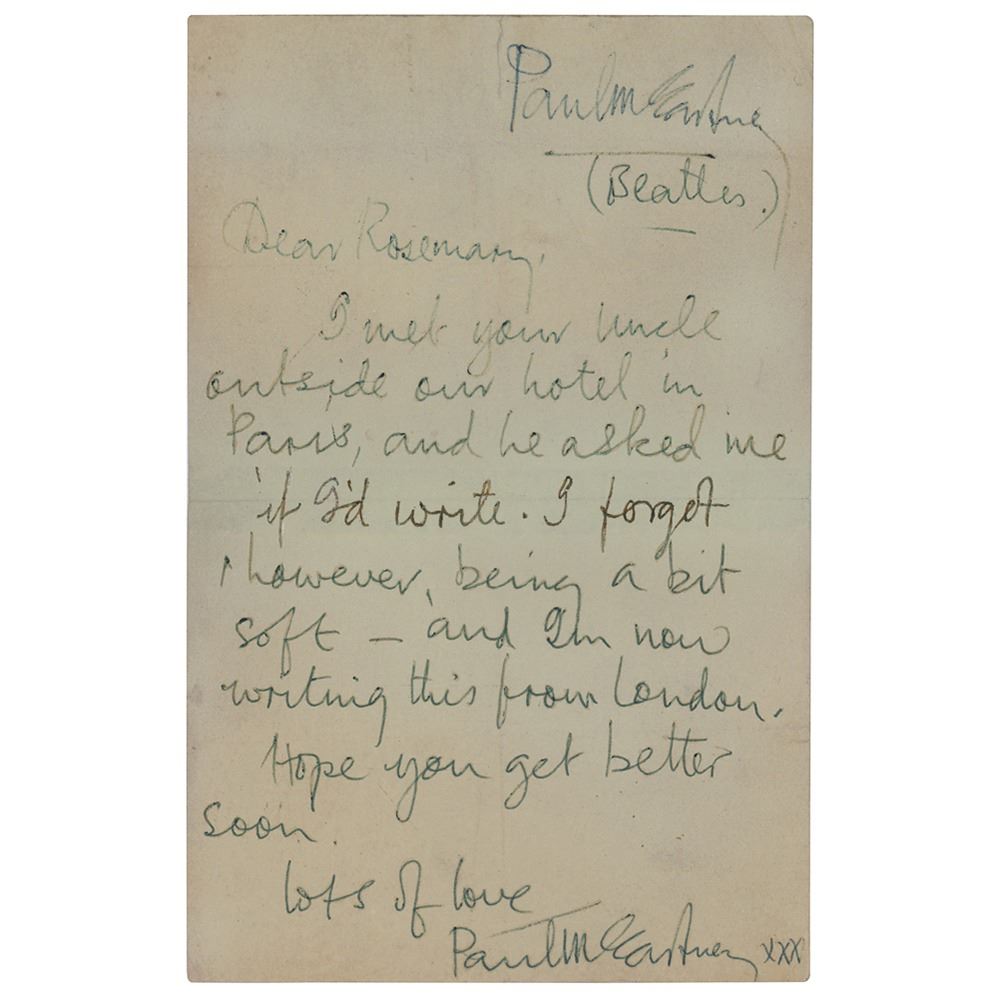 Paul McCartney
(Beatles.)
Dear Rosemary,
I met your Uncle
outside our hotel in
Paris, and he asked me
if I'd write. I forgot
however, being a bit
soft – and I'm now
writing this from London.
Hope you get better
soon.
lots of love
Paul McCartney xxx